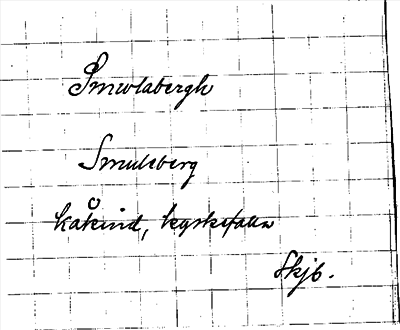 Smwlabergh
Smulsberg
Kåkind, Kyrkefalla
Skjb.